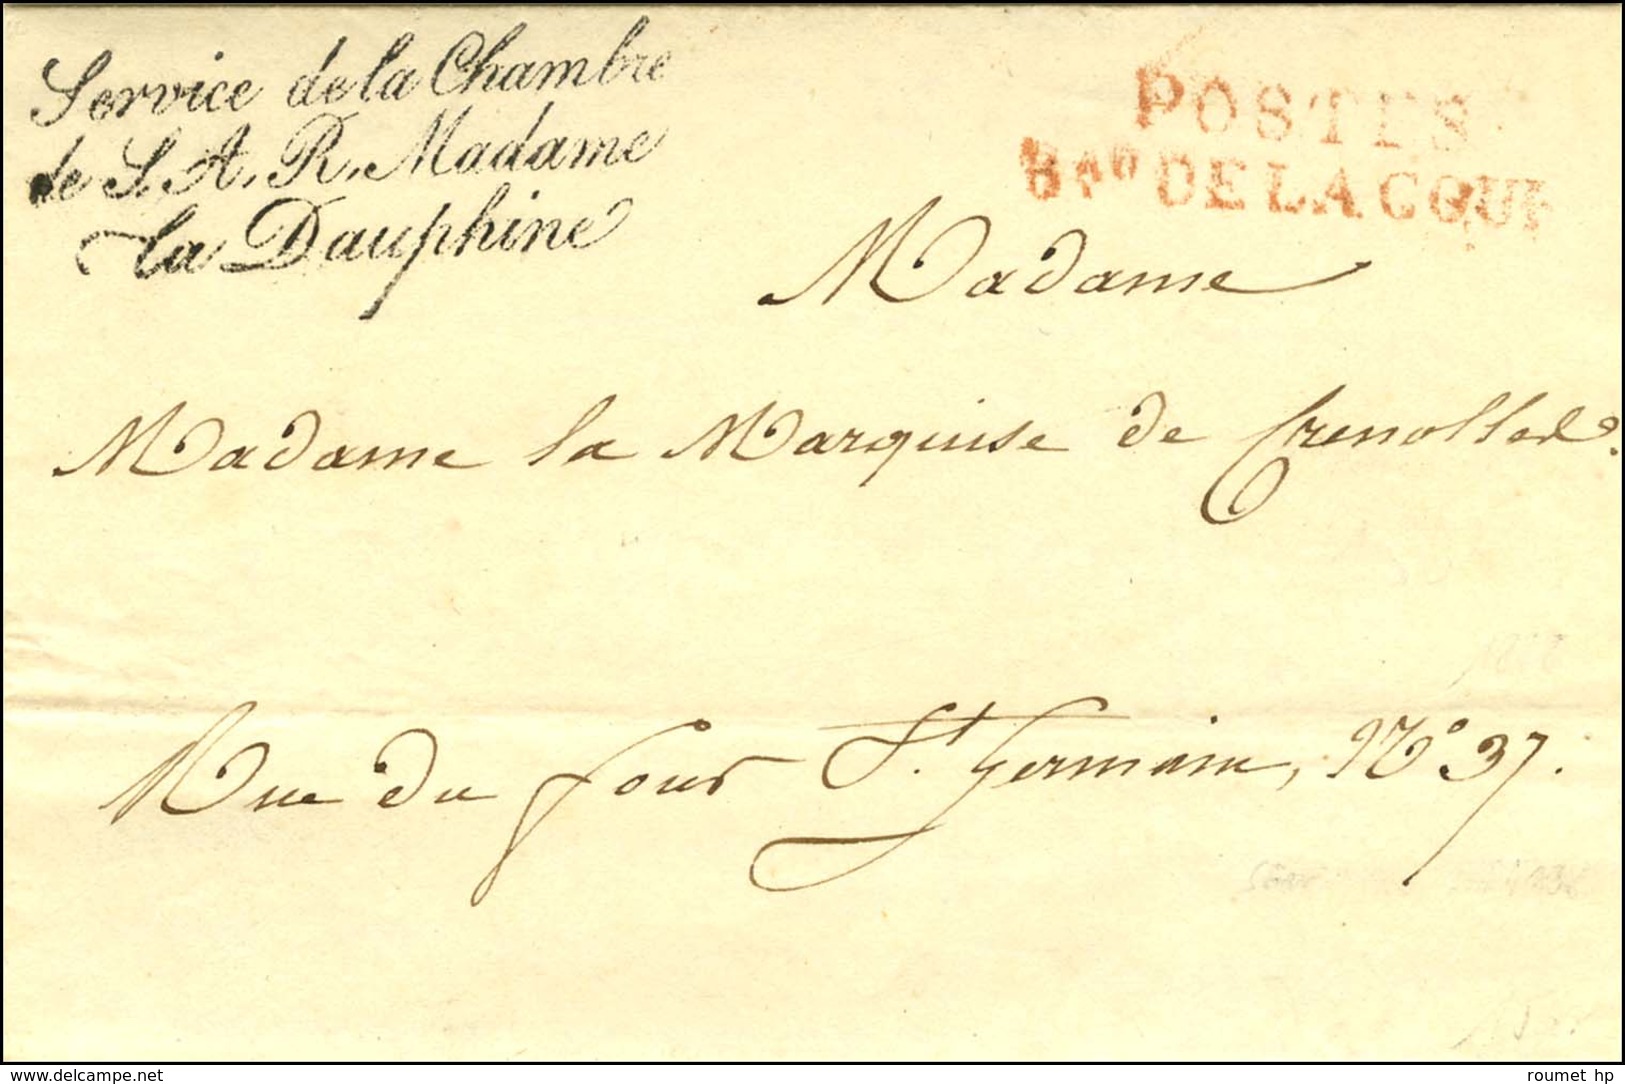 Service de la Chambre
de S. A. R. Madame
la Dauphine
POSTES
Bau DE LA COUR
Madame
Madame la Marquise de Crenolles.
Rue du four St. Germain, No 37.
www.delcampe.net
roumet hp